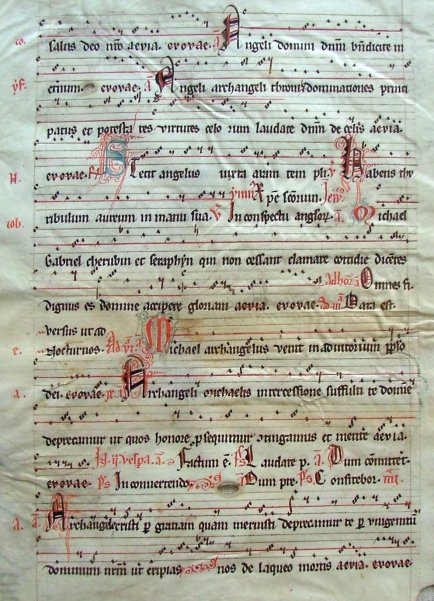 salus deo nr̄o aevia. evovae. a̅ Angeli domini dnm̄ bn̄dicite in
et̄num. evovae. a̅ Angeli archangeli throni dominationes princi
patus et potesta tes virtutes celo rum laudate dnm̄ de celis aevia.
evovae. Stetit angelus iuxta aram tem pli. v̄ Habens thu
ribulum aureum in manu sua. v̄ In conspectu anglor̄. a̅ Michael
ymn̄ Xp̄e sc̄orum.
Gabriel cherubin et seraphyn qui non cessant clamare cotidie dicētes
Omnes sc̄i
dignus es domine accipere gloriam aevia. evovae. Data est.
versus ut ad
Nocturnos. Ad a̅ Michael archangelus venit in adiutorium pp̄lo
dei. evovae. a̅ Archangeli michaelis intercessione suffulti te domine
deprecamur ut quos honore p̄sequimur contingamus et mente aevia.
In ij. vesp̄a. a̅ Factum ē. p̄s Laudate p. a̅ Dum cōmitt̄et.
evovae. p̄s In convertendo. Dum pre. p̄s Confitebor.
a̅ Archangele cristi p̄ gratiam quam meruisti deprecamur te p̄ unigenitū
dominum nr̄m ut eripias nos de laqueo mortis aevia. evovae.